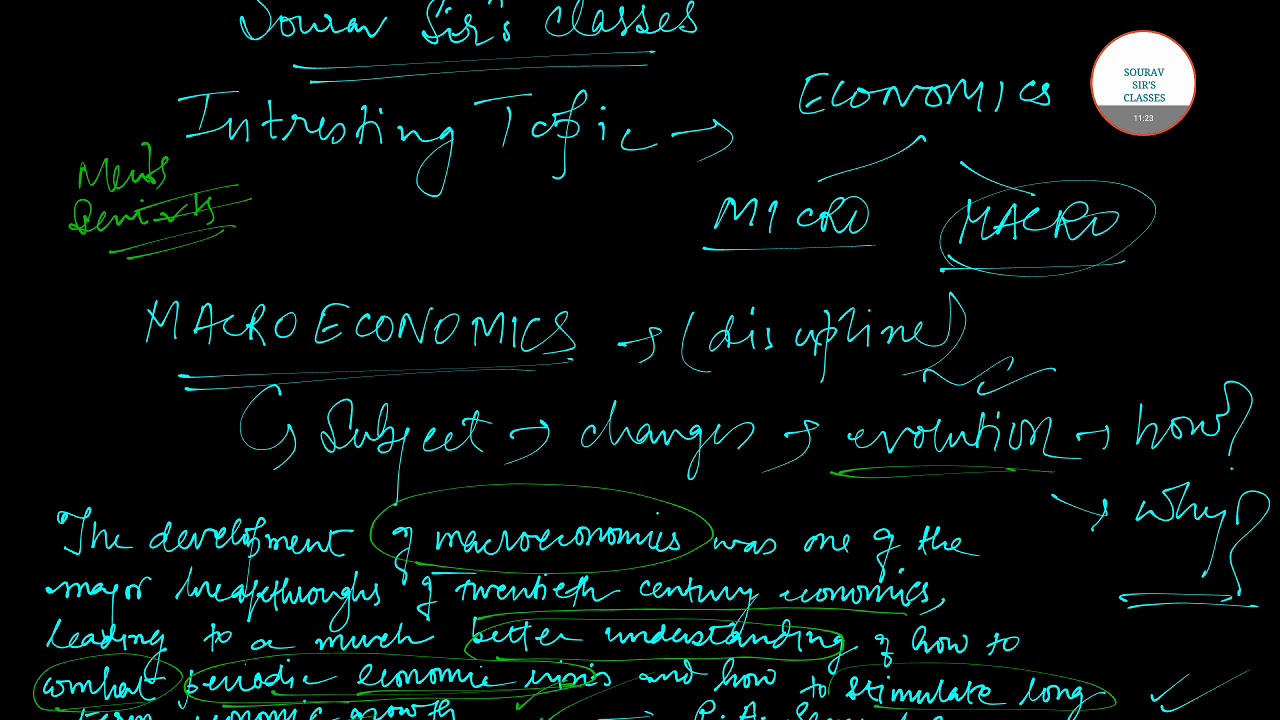 Sourav Sir's Classes
SOURAV
SIR'S
CLASSES
11:23
Intresting Topic → ECONOMICS
MICRO MACRO
MACROECONOMICS → (discipline)
Subject → changes → evolution → how?
→ why?
The development of macroeconomics was one of the
major breakthroughs of twentieth century economics,
leading to a much better understanding of how to
combat periodic economic crisis and how to stimulate long
term economic growth